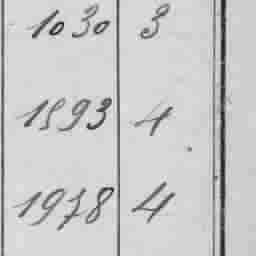 1030 3
1893 4
1978 4